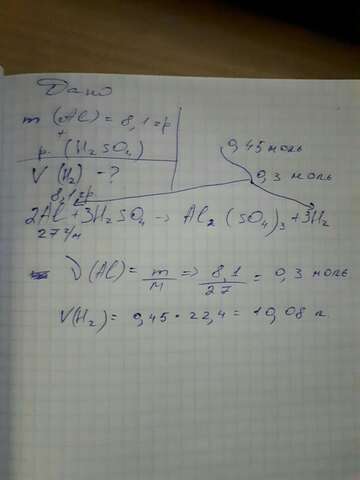 Дано
m (Al) = 8,1 гр
+
р. (H₂SO₄)
V (H₂) - ?
0,45 моль
0,3 моль
8,1 гр.
2Al + 3H₂SO₄ → Al₂(SO₄)₃ + 3H₂
27 г/м
ν(Al) = m/M => 8,1/27 = 0,3 моль
V(H₂) = 0,45 · 22,4 = 10,08 л.